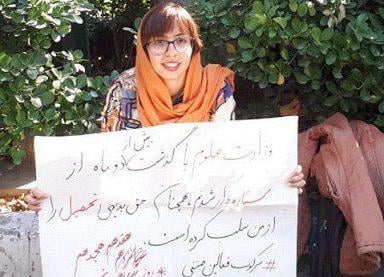 بیش از
وزارت علوم با گذشت دو ماه از
ستاره دار شدنم، همچنان حق بدیهی تحصیل را
از من سلب کرده است.
هفدهم هجدهم
#سرکوب فعالین صنفی